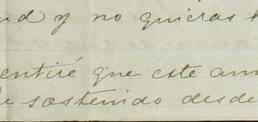 y no quieras
entiré que este am
sostenido desde